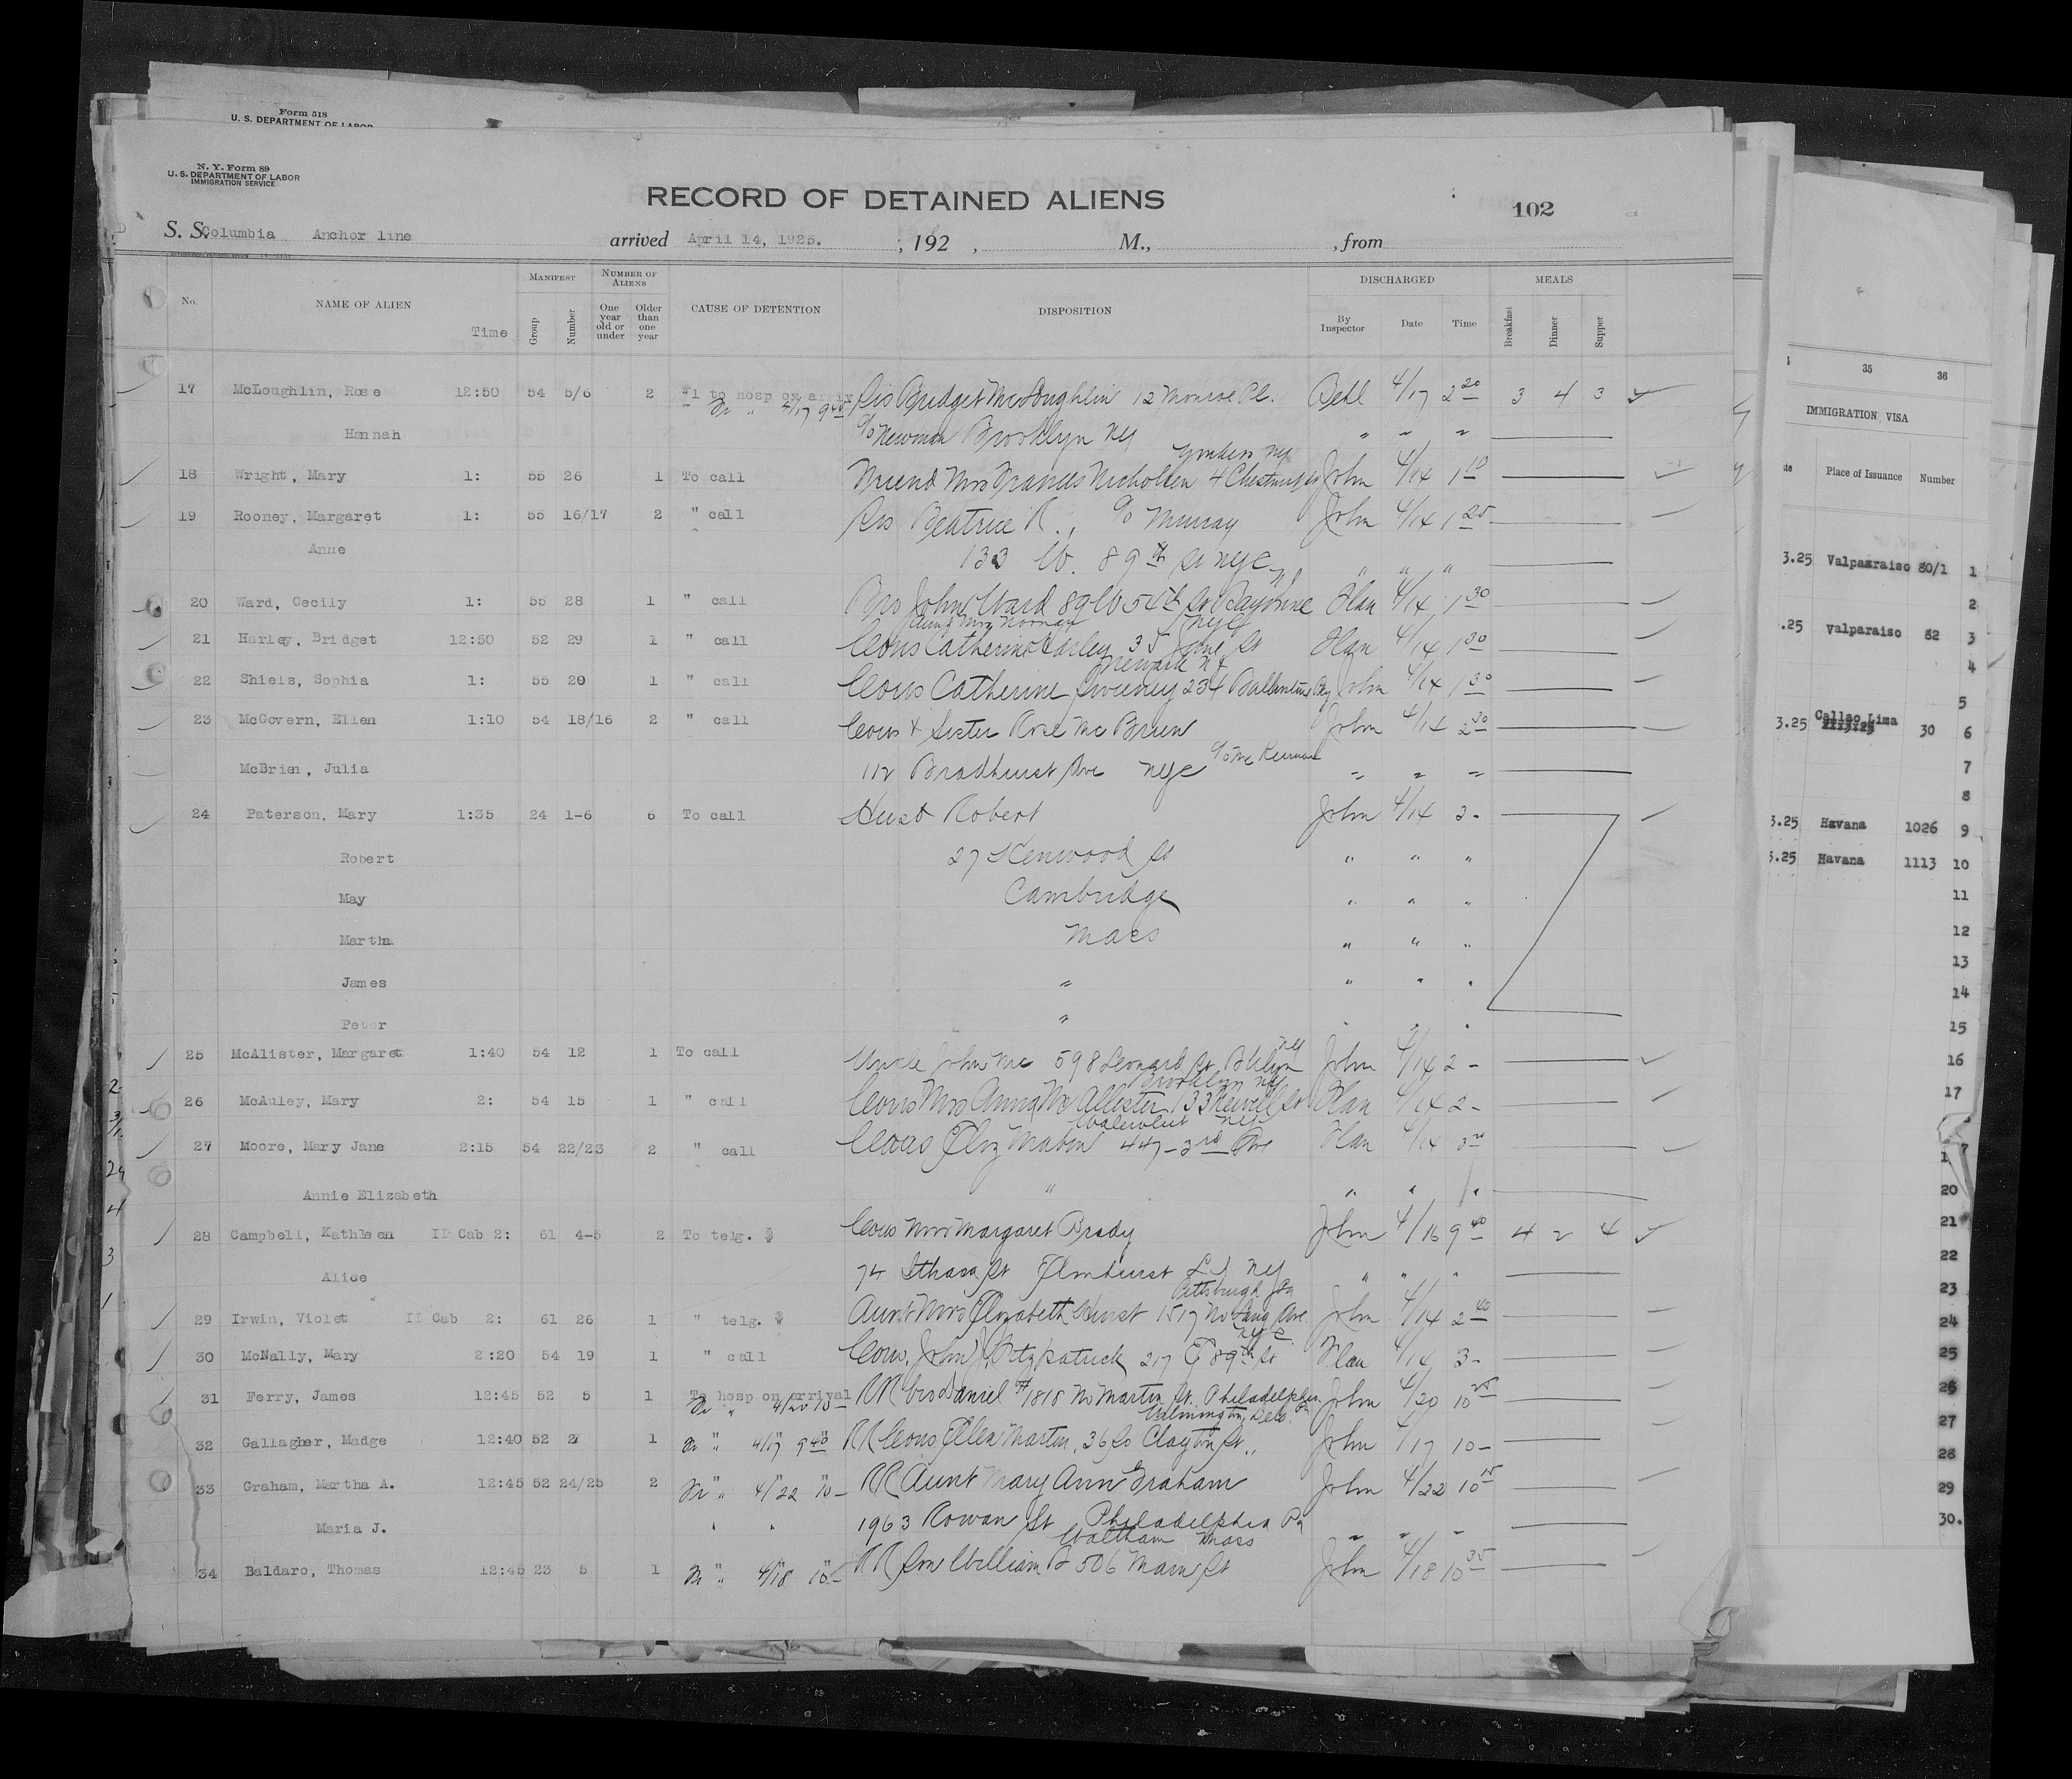 Form 518
U. S. DEPARTMENT OF LABOR
N. Y. Form 89
U. S. DEPARTMENT OF LABOR
IMMIGRATION SERVICE
RECORD OF DETAINED ALIENS
102
S. S. Columbia Anchor line arrived April 14, 1925. , 192 , M., , from
No. NAME OF ALIEN Time MANIFEST Group Number NUMBER OF ALIENS One year old or under Older than one year CAUSE OF DETENTION DISPOSITION DISCHARGED By Inspector Date Time MEALS Breakfast Dinner Supper
17 McLoughlin, Rose 12:50 54 5/6 2 #1 to hosp on arriv Sis Bridget McLoughlin 12 Monroe Pl. 4/17 2 20 3 4 3
4/17 9 40
Hannah c/o Newman Brooklyn NY " " "
Yonkers NY
18 Wright, Mary 1: 55 26 1 To call Friend Mrs Frances Nicholsen 4 Chestnut St John 4/14 1 10
19 Rooney, Margaret 1: 55 16/17 2 " call Sis Beatrice R., c/o Murray John 4/14 1 25
Anne 133 W. 89th St NYC " " "
NJ
20 Ward, Cecily 1: 55 28 1 " call Bro John Ward 89 W 54th St Bayonne Han 4/14 1 30
Aunt Mrs Noonan NYC
21 Harley, Bridget 12:50 52 29 1 " call Cous Catherine Earley 35 Jane St Han 4/14 1 30
Newark NJ
22 Shiels, Sophia 1: 55 20 1 " call Cous Catherine Sweeney 234 Ballantine Pky John 4/14 1 30
23 McGovern, Ellen 1:10 54 18/16 2 " call Cous & Sister Rose McBrien John 4/14 2 30
McBrien, Julia 112 Bradhurst Ave NYC c/o McKiernan " " "
24 Paterson, Mary 1:35 24 1-6 6 To call Husb Robert John 4/14 2 -
Robert 27 Kenwood St " " "
May Cambridge " " "
Martha Mass " " "
James " " " "
Peter " " " "
NY
25 McAlister, Margaret 1:40 54 12 1 To call Uncle John Mc 598 Leonard St Bklyn John 4/14 2 -
Brooklyn NY
26 McAuley, Mary 2: 54 15 1 " call Cous Mrs Anna McAllester 133 Newell St Han 4/14 2 -
Watervliet NY
27 Moore, Mary Jane 2:15 54 22/23 2 " call Cous Eliz Mabin 447-3rd Ave Han 4/14
Annie Elizabeth " " " "
28 Campbell, Kathleen II Cab 2: 61 4-5 2 To telg. $ Cous Mrs Margaret Brady John 4/16 9 40 4 2 4
Alice 74 Ithaca St Elmhurst L I NY " " "
Pittsburgh Pa
29 Irwin, Violet II Cab 2: 61 26 1 " telg. $ Aunt Mrs Elizabeth Hurst 1517 No Lang Ave John 4/14 2 40
NYC
30 McNally, Mary 2:20 54 19 1 " call Cous. John J. Fitzpatrick 217 E 89th St Han 4/14 3 -
31 Ferry, James 12:45 52 5 1 To hosp on arrival RR bro Daniel # 1818 No Martin St. Philadelphia Pa John 4/20 10 25
" 4/20 10 -
Wilmington, Dela.
32 Gallagher, Madge 12:40 52 2 1 " 4/17 9 40 RR Cous Ellen Martin, 36 So Clayton St., John 4/17 10 -
33 Graham, Martha A. 12:45 52 24/25 2 " 4/22 10 - RR Aunt Mary Ann Graham John 4/22 10 15
Maria J. " " 1963 Rowan St Philadelphia Pa " " "
Waltham Mass
34 Baldaro, Thomas 12:45 23 5 1 " 4/18 10 - RR Son William B 506 Main St John 4/18 10 35
35 36
IMMIGRATION VISA
Place of Issuance Number
3.25 Valparaiso 80/1 1
2
.25 Valparaiso 82 3
4
5
3.25 Callao Lima 30 6
7
8
3.25 Havana 1026 9
3.25 Havana 1113 10
11
12
13
14
15
16
17
20
21
22
23
24
25
26
27
28
29
30.